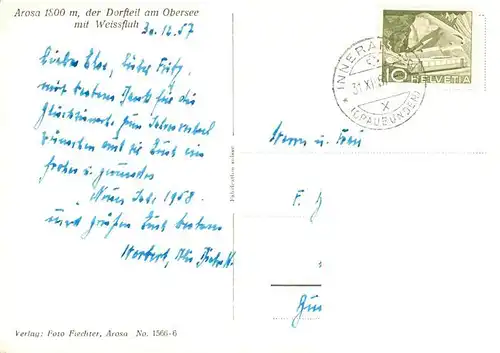 Arosa 1800 m, der Dorfteil am Obersee
mit Weissfluh
30.12.57
Liebe Else, lieber Fritz,
mit bestem Dank für die
Glückwünsche zum Jahreswechsel
wünschen auch die Euch ein
frohes u. gesundes
Neues Jahr 1958
und grüßen Euch bestens
Herbert,
INNERAROSA
31.XII.5
X
(GRAUBÜNDEN)
10 HELVETIA
Herrn u. Frau
F.
Fabrikation suisse
Verlag: Foto Fiechter, Arosa No. 1566-6